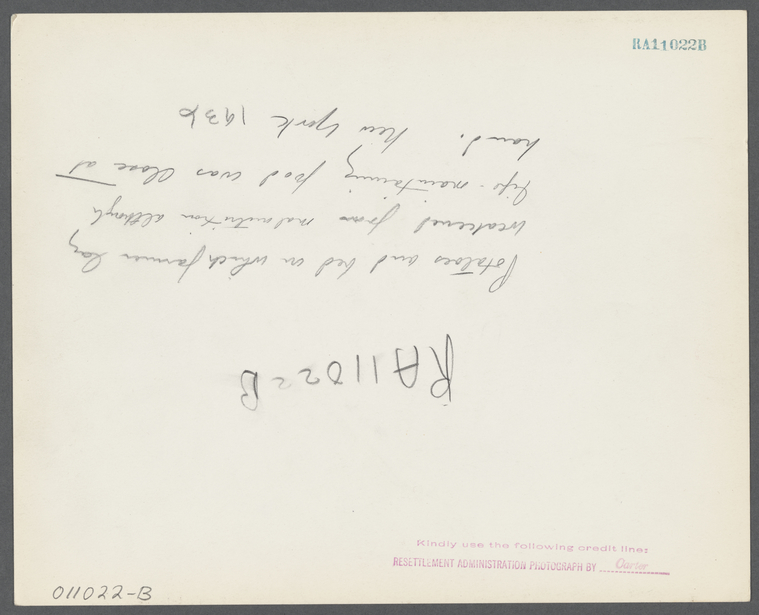 RA11022B
Potatoes and bed in which farmer lay
weakened from malnutrition although
life-maintaining food was close at
hand. New York 1936
RA 11022-B
Kindly use the following credit line:
RESETTLEMENT ADMINISTRATION PHOTOGRAPH BY Carter
011022-B